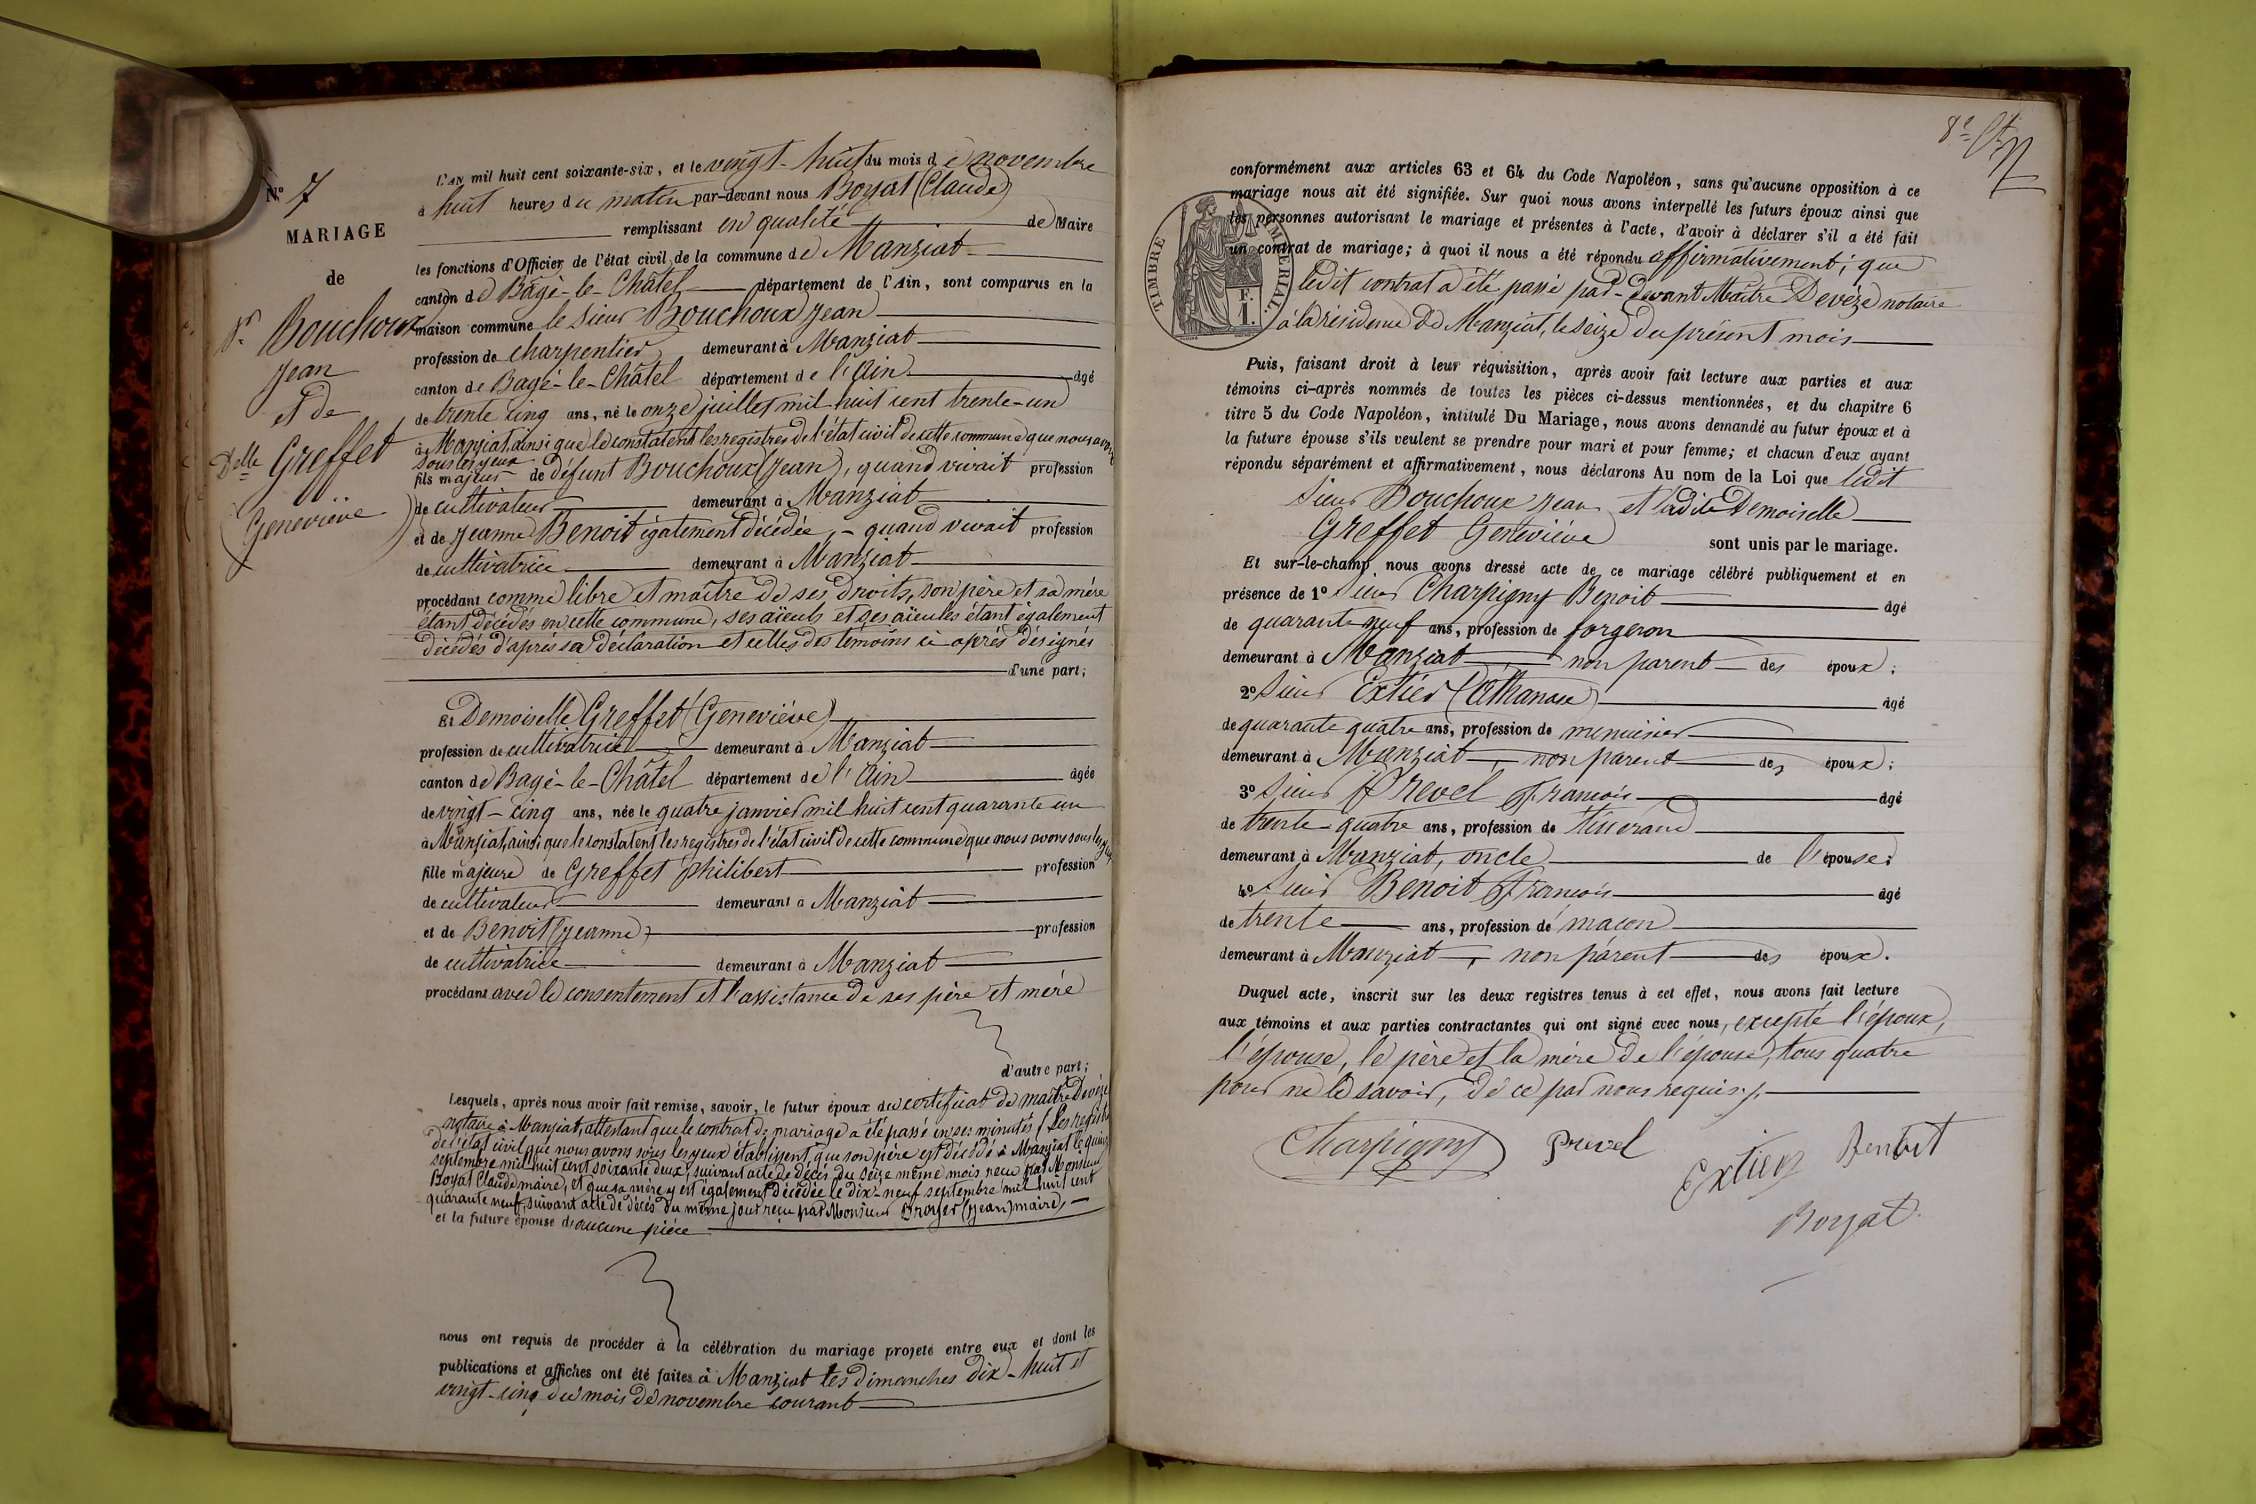 N° 7
MARIAGE
de
Sr Bouchoux
Jean
et de
Delle Greffet
(Geneviève)
L'AN mil huit cent soixante-six, et le vingt-huit du mois de novembre
à huit heures du matin par-devant nous Boyat (Claude)
remplissant en qualité de Maire
les fonctions d'Officier de l'état civil de la commune de Manziat
canton de Bâgé-le-Châtel département de l'Ain, sont comparus en la
maison commune le sieur Bouchoux Jean
profession de charpentier demeurant à Manziat
canton de Bâgé-le-Châtel département de l'Ain âgé
de trente cinq ans, né le onze juillet mil huit cent trente-un
à Manziat, ainsi que le constatent les registres de l'état civil de cette commune que nous avons
sous les yeux
fils majeur de défunt Bouchoux (Jean), quand vivait profession
de cultivateur demeurant à Manziat
et de Jeanne Benoit également décédée, - quand vivait profession
de cultivatrice demeurant à Manziat
procédant comme libre et maître de ses droits, son père et sa mère
étant décédés en cette commune, ses aïeuls et ses aïeules étant également
décédés d'après sa déclaration et celles des témoins ci après désignés
d'une part;
Et Demoiselle Greffet (Geneviève)
profession de cultivatrice demeurant à Manziat
canton de Bagé-le-Châtel département de l'Ain âgée
de vingt-cinq ans, née le quatre janvier mil huit cent quarante un
à Manziat, ainsi que le constatent les registres de l'état civil de cette commune que nous avons sous les yeux
fille majeure de Greffet Philibert profession
de cultivateur demeurant à Manziat
et de Benoit (Jeanne) profession
de cultivatrice demeurant à Manziat
procédant avec le consentement et l'assistance de ses père et mère
d'autre part;
Lesquels, après nous avoir fait remise, savoir, le futur époux du certificat de maître Devèze
notaire à Manziat, attestant que le contrat de mariage a été passé en ses minutes (Les registres
de l'état civil que nous avons sous les yeux établissent que son père est décédé à Manziat le quinze
septembre mil huit cent soixante deux, suivant acte de décès du seize même mois reçu par Monsieur
Boyat Claude maire, et que sa mère y est également décédée le dix-neuf septembre mil huit cent
quarante neuf, suivant acte de décès du même jour reçu par Monsieur Broyer (Jean) maire)
et la future épouse d'aucune pièce
nous ont requis de procéder à la célébration du mariage projeté entre eux et dont les
publications et affiches ont été faites à Manziat les dimanches dix-huit et
vingt-cinq du mois de novembre courant
8e
conformément aux articles 63 et 64 du Code Napoléon, sans qu'aucune opposition à ce
mariage nous ait été signifiée. Sur quoi nous avons interpellé les futurs époux ainsi que
les personnes autorisant le mariage et présentes à l'acte, d'avoir à déclarer s'il a été fait
un contrat de mariage; à quoi il nous a été répondu affirmativement; que
ledit contrat a été passé par-devant Maître Devèze notaire
à la résidence de Manziat, le seize du présent mois
TIMBRE IMPERIAL.
1 F.
Puis, faisant droit à leur réquisition, après avoir fait lecture aux parties et aux
témoins ci-après nommés de toutes les pièces ci-dessus mentionnées, et du chapitre 6
titre 5 du Code Napoléon, intitulé Du Mariage, nous avons demandé au futur époux et à
la future épouse s'ils veulent se prendre pour mari et pour femme; et chacun d'eux ayant
répondu séparément et affirmativement, nous déclarons Au nom de la Loi que ledit
Sieur Bouchoux Jean et ladite Demoiselle
Greffet Geneviève sont unis par le mariage.
Et sur-le-champ nous avons dressé acte de ce mariage célébré publiquement et en
présence de 1° Sieur Charpigny Benoit âgé
de quarante neuf ans, profession de forgeron
demeurant à Manziat non parent des époux;
2° Sieur Extier (Athanase) âgé
de quarante quatre ans, profession de menuisier
demeurant à Manziat, non parent des époux;
3° Sieur Prevel François âgé
de trente-quatre ans, profession de tisserand
demeurant à Manziat, oncle de l'épouse;
4° Sieur Benoit François âgé
de trente ans, profession de maçon
demeurant à Manziat, non parent des époux.
Duquel acte, inscrit sur les deux registres tenus à cet effet, nous avons fait lecture
aux témoins et aux parties contractantes qui ont signé avec nous, excepté l'époux,
l'épouse, le père et la mère de l'épouse, tous quatre
pour ne le savoir, de ce par nous requis.
Charpigny Prevel Extier Benoit
Boyat